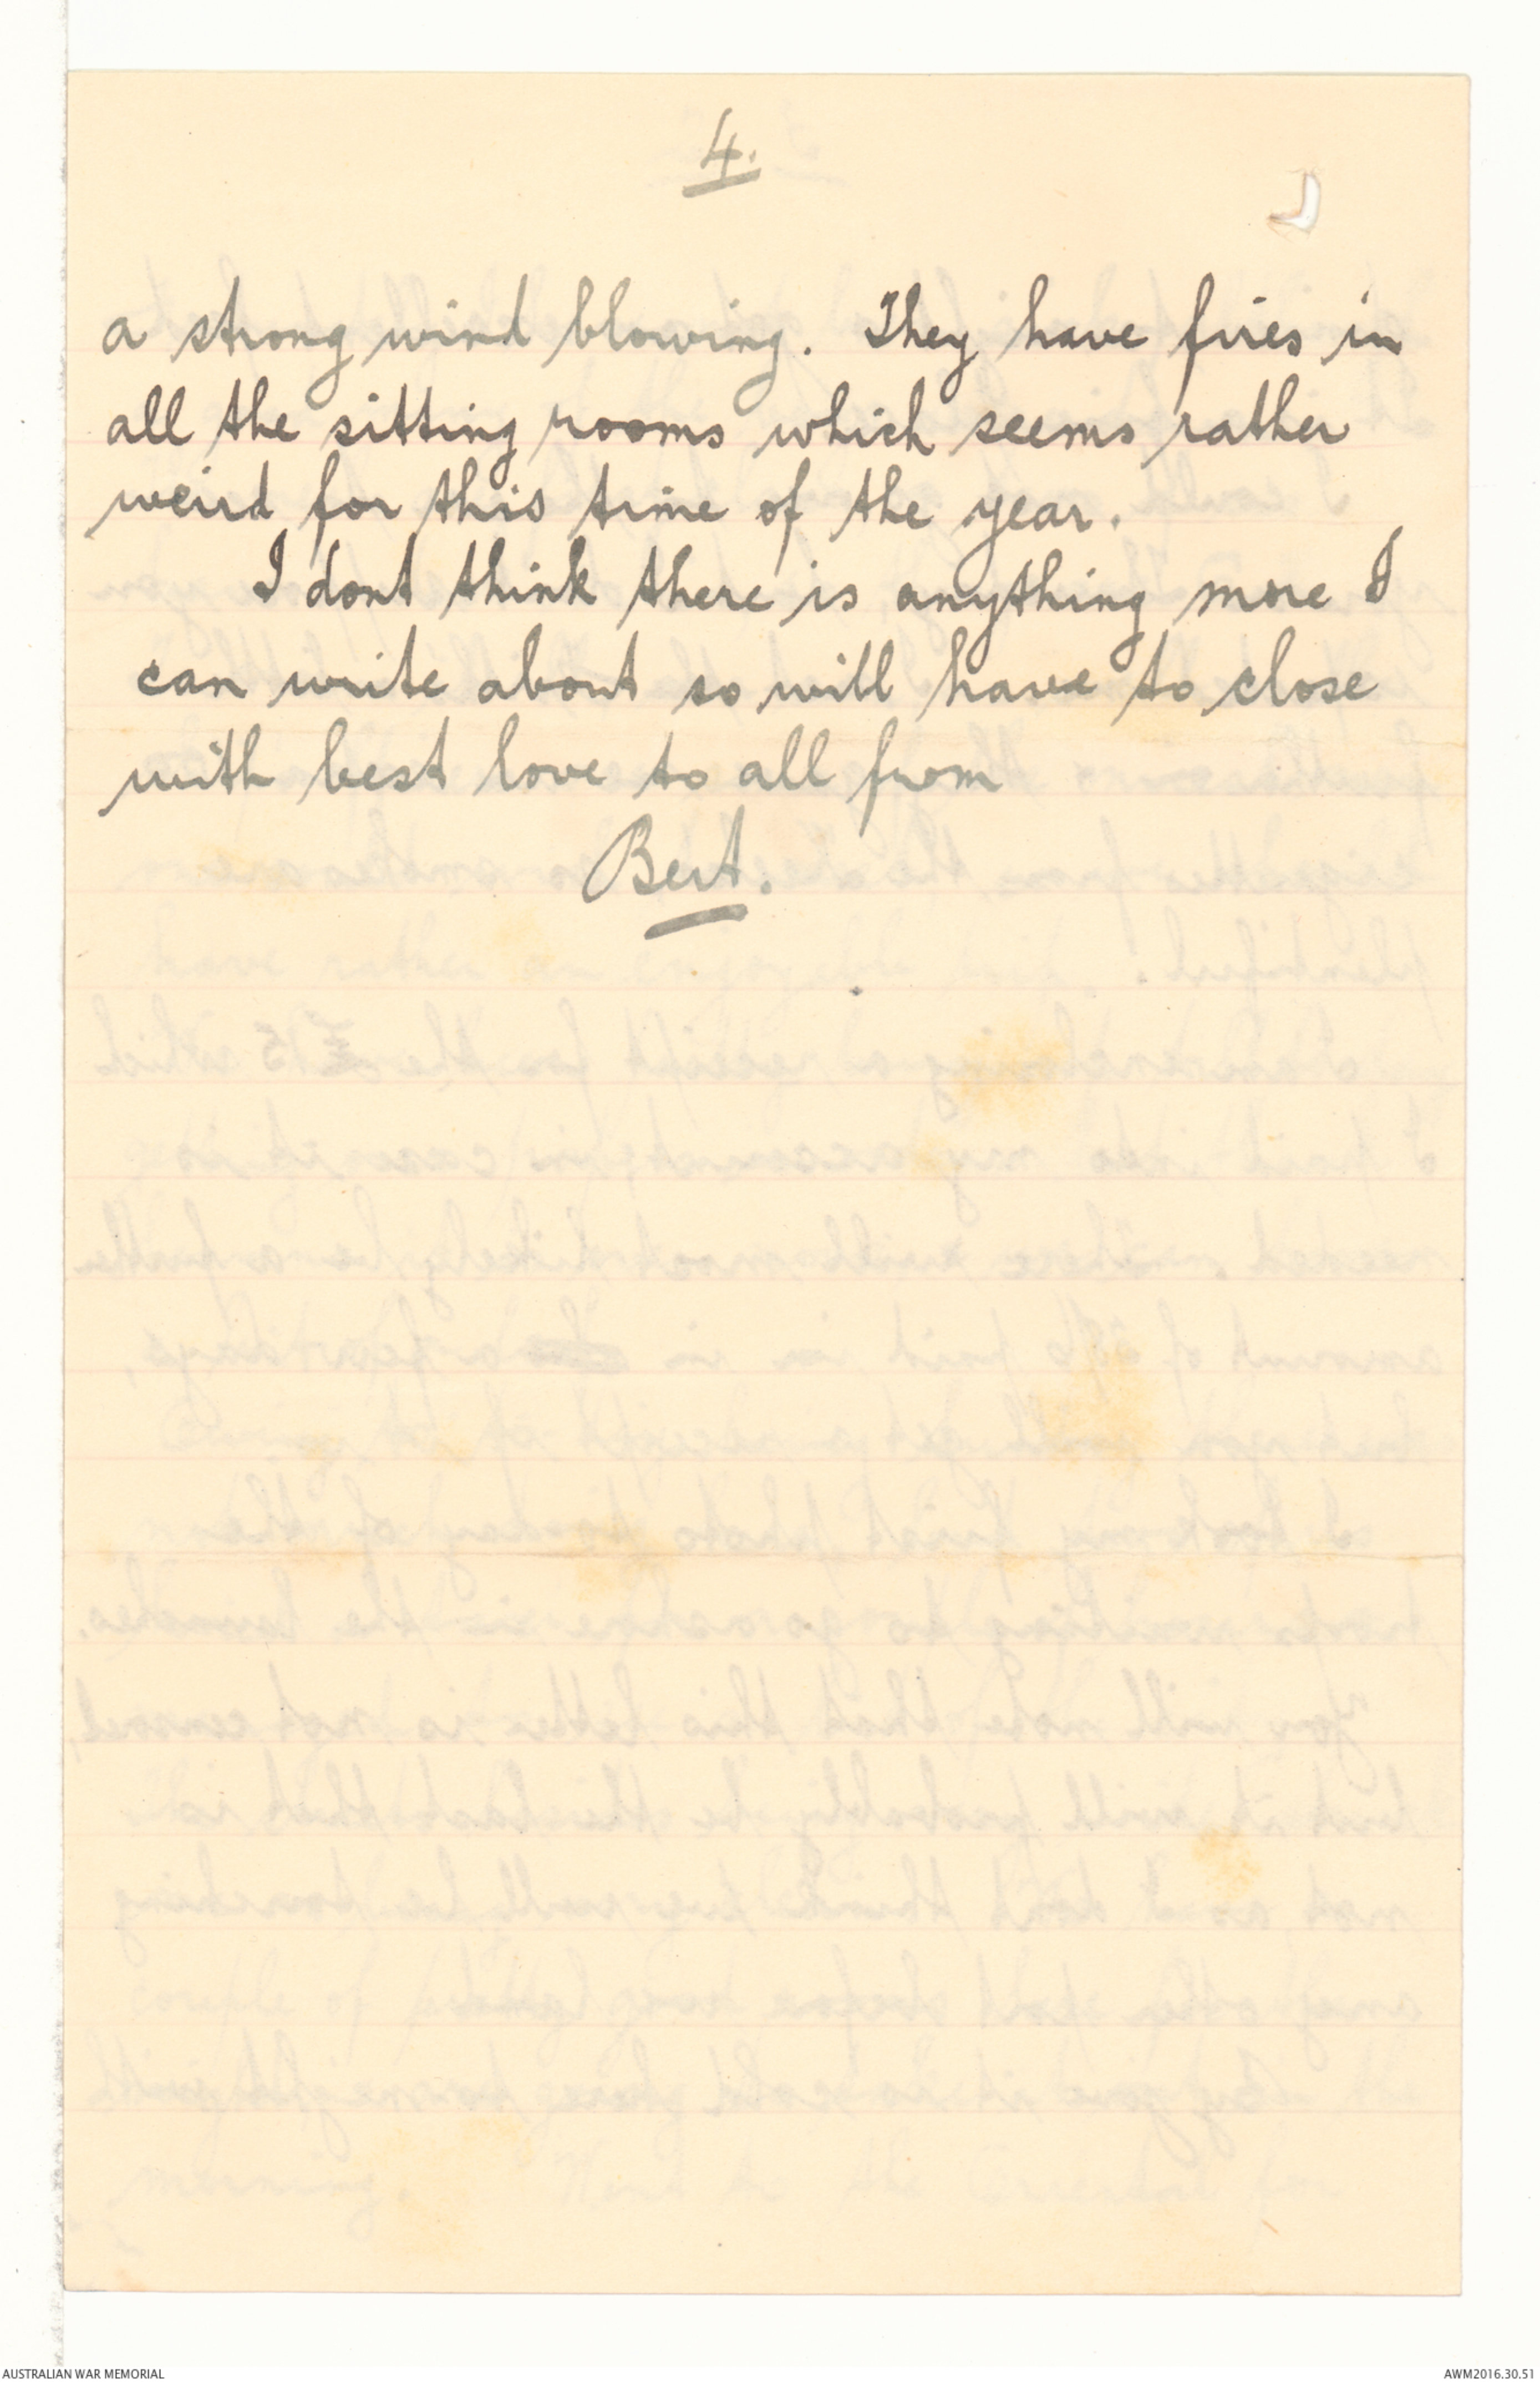 4.
a strong wind blowing. They have fires in
all the sitting rooms which seems rather
weird for this time of the year.
I dont think there is anything more I
can write about so will have to close
with best love to all from
Bert.
AUSTRALIAN WAR MEMORIAL
AWM2016.30.51